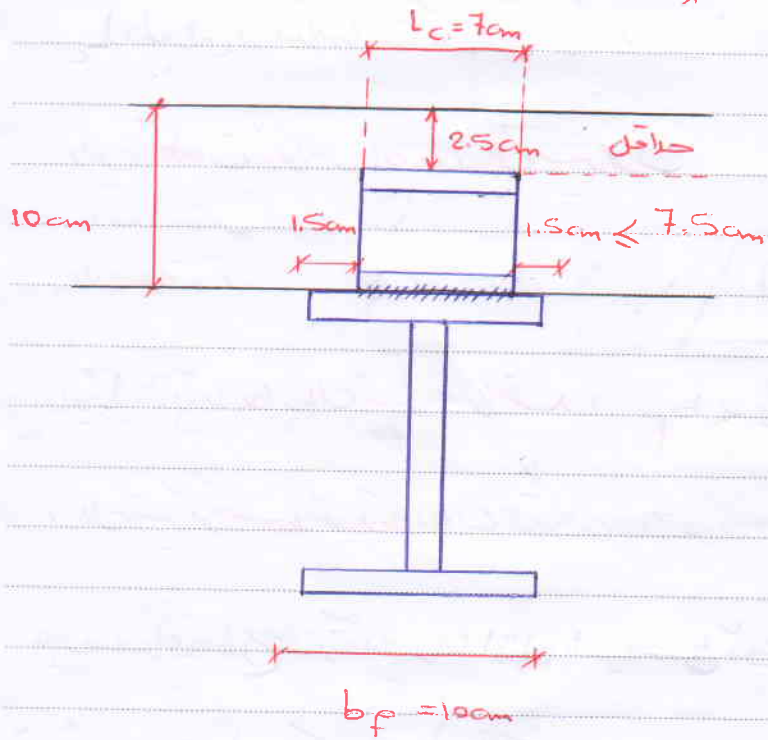 Lc = 7cm
2.5cm حداقل
10cm
1.5cm 1.5cm ≤ 7.5cm
bf = 10cm